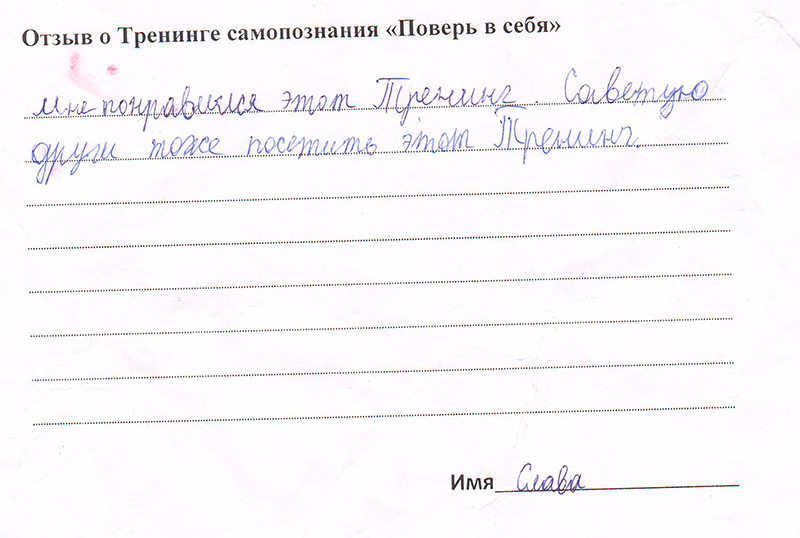 Отзыв о Тренинге самопознания «Поверь в себя»
Мне понравился этот Тренинг. Советую
други тоже посетить этот Тренинг.
Имя Слава